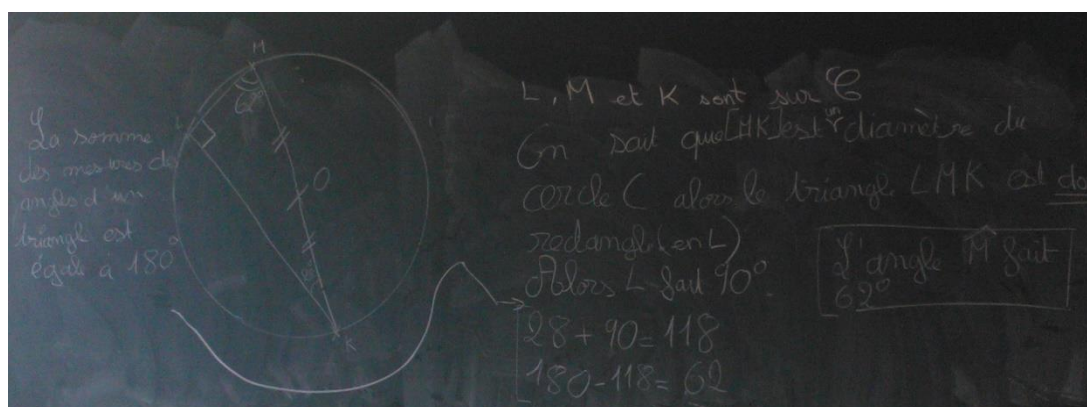 La somme
des mesures de
angles d'un
triangl est
égale à 180°
M
L
62°
O
28
K
L, M et K sont sur C
On sait que [MK] est un diamètre du
cercle C alors le triangle LMK est
redangle (en L)
Alors L fait 90°.
28 + 90 = 118
180 - 118 = 62
L'angle M fait
62°